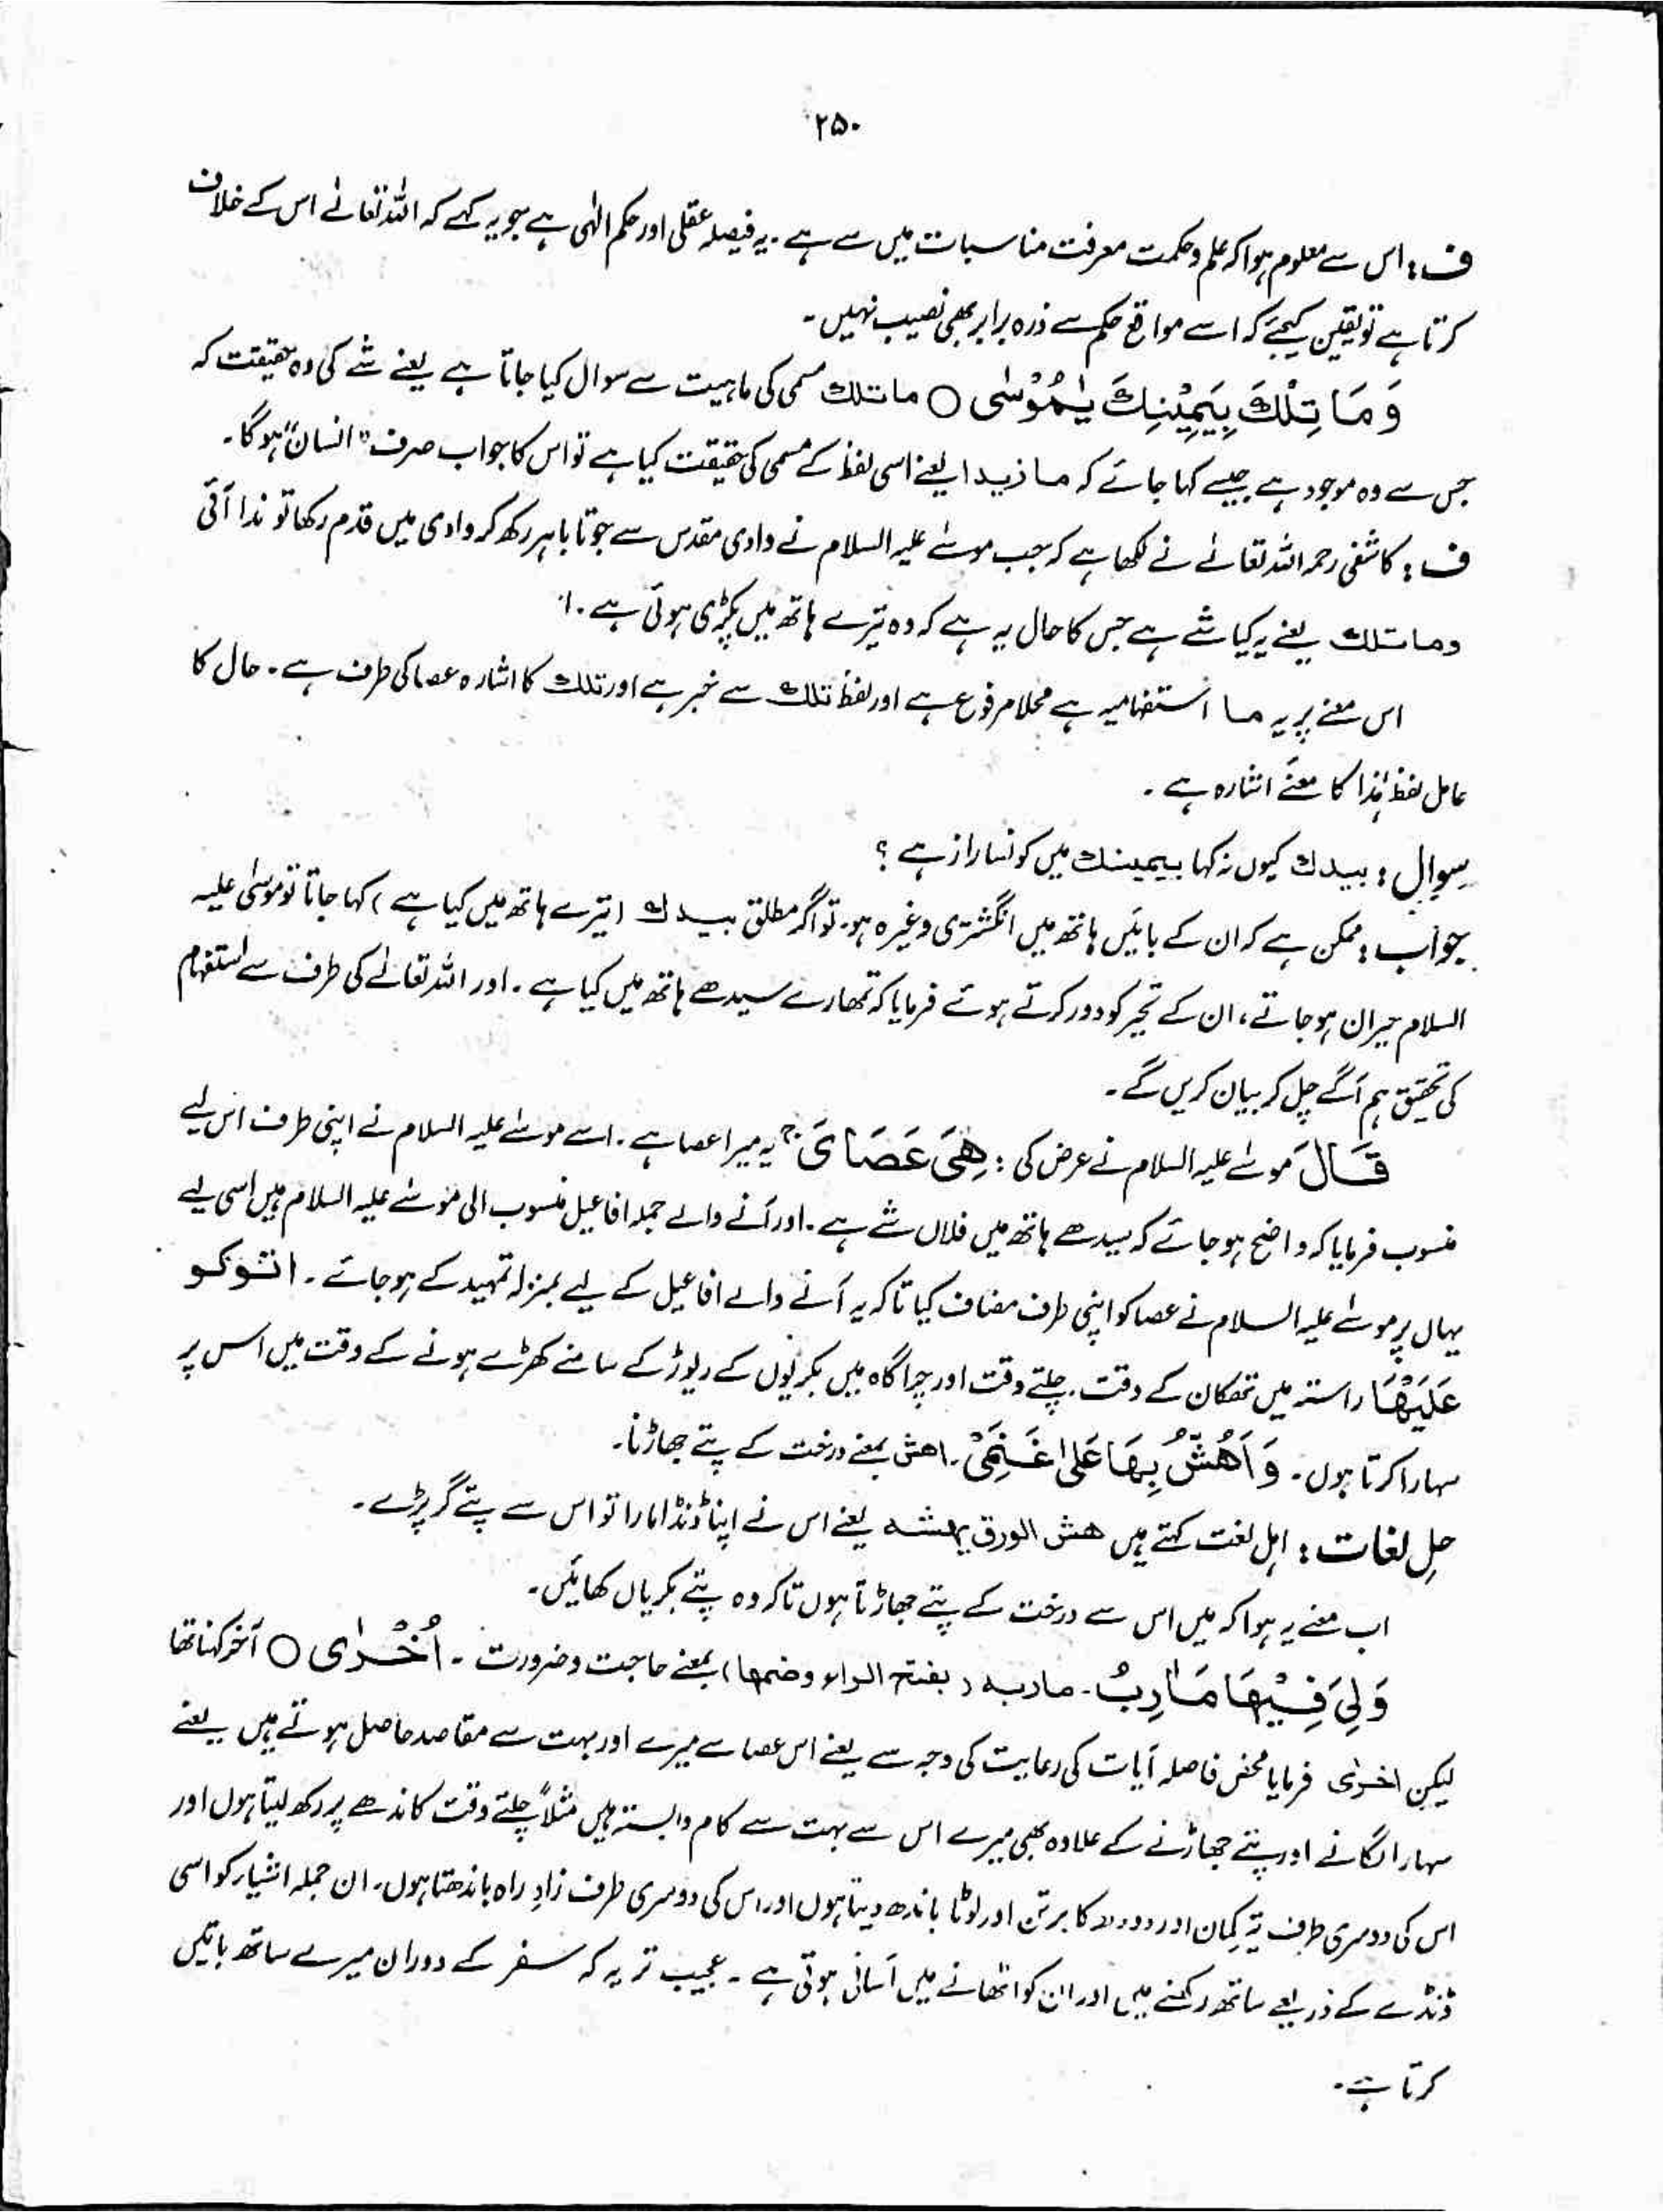 ۲۵۰
ف : اس سے معلوم ہوا کہ علم و حکمت معرفت مناسبات میں سے ہے ۔ یہ فیصلہ عقلی اور حکم الٰہی ہے جو یہ کہے کہ اللہ تعالےٰ اس کے خلاف
کرتا ہے تو یقین کیجئے کہ اسے مواقع حکم سے ذرہ برابر بھی نصیب نہیں ۔
وَمَا تِلْكَ بِيَمِيْنِكَ يٰمُوْسٰى ○ ما تلك مسمی کی ماہیت سے سوال کیا جاتا ہے یعنے شے کی وہ حقیقت کہ
جس سے وہ موجود ہے جیسے کہا جائے کہ ما زيد ا یعنے اسی لفظ کے مسمی کی حقیقت کیا ہے تو اس کا جواب صرف "انسان" ہوگا ۔
ف : کاشفی رحمہ اللہ تعالےٰ نے لکھا ہے کہ جب موسےٰ علیہ السلام نے وادی مقدس سے جوتا باہر رکھ کر وادی میں قدم رکھا تو ندا آئی
وما تلك یعنے یہ کیا شے ہے جس کا حال یہ ہے کہ وہ تیرے ہاتھ میں پکڑی ہوئی ہے ۔
اس معنے پر یہ ما استفہامیہ ہے محلا مرفوع ہے اور لفظ تلك سے خبر ہے اور تلك کا اشارہ عصا کی طرف ہے ۔ حال کا
عامل لفظ ہٰذا کا معنےٰ اشارہ ہے ۔
سوال : بيدك کیوں نہ کہا بيمينك میں کونسا راز ہے ؟
جواب : ممکن ہے کہ ان کے بائیں ہاتھ میں انگشتری وغیرہ ہو ۔ تو اگر مطلق بيدك (تیرے ہاتھ میں کیا ہے) کہا جاتا تو موسیٰ علیہ
السلام حیران ہو جاتے، ان کے تحیر کو دور کرتے ہوئے فرمایا کہ تمھارے سیدھے ہاتھ میں کیا ہے ۔ اور اللہ تعالےٰ کی طرف سے استفہام
کی تحقیق ہم آگے چل کر بیان کریں گے ۔
قَالَ موسےٰ علیہ السلام نے عرض کی : هِيَ عَصَايَ ۚ یہ میرا عصا ہے ۔ اسے موسےٰ علیہ السلام نے اپنی طرف اس لیے
منسوب فرمایا کہ واضح ہو جائے کہ سیدھے ہاتھ میں فلاں شے ہے ۔ اور آنے والے جملہ افاعیل منسوب الی موسےٰ علیہ السلام ہیں اسی لیے
یہاں پر موسےٰ علیہ السلام نے عصا کو اپنی طرف مضاف کیا تاکہ یہ آنے والے افاعیل کے لیے بمنزلہ تمہید کے ہو جائے ۔ اتوكو
عَلَيْهَا راستہ میں تھکان کے وقت ۔ چلتے وقت اور چراگاہ میں بکریوں کے ریوڑ کے سامنے کھڑے ہونے کے وقت میں اس پر
سہارا کرتا ہوں ۔ وَاَهُشُّ بِهَا عَلٰى غَنَمِيْ ۔ اهش بمعنے درخت کے پتے جھاڑنا ۔
حل لغات : اہل لغت کہتے ہیں هش الورق يهشه یعنے اس نے اپنا ڈنڈا مارا تو اس سے پتے گر پڑے ۔
اب معنے یہ ہوا کہ میں اس سے درخت کے پتے جھاڑتا ہوں تاکہ وہ پتے بکریاں کھائیں ۔
وَلِيَ فِيْهَا مَاٰرِبُ ۔ ماربه (بفتح الراء وضمها) بمعنے حاجت و ضرورت ۔ اُخْرٰى ○ آخر کہنا تھا
لیکن اخریٰ فرمایا محض فاصلہ آیات کی رعایت کی وجہ سے یعنے اس عصا سے میرے اور بہت سے مقاصد حاصل ہوتے ہیں یعنے
سہارا لگانے اور پتے جھاڑنے کے علاوہ بھی میرے اس سے بہت سے کام وابستہ ہیں مثلاً چلتے وقت کاندھے پر رکھ لیتا ہوں اور
اس کی دوسری طرف تیر کمان اور دودھ کا برتن اور لوٹا باندھ دیتا ہوں اور اس کی دوسری طرف زادِ راہ باندھتا ہوں ۔ ان جملہ اشیار کو اسی
ڈنڈے کے ذریعے ساتھ رکھنے میں اور ان کو اٹھانے میں آسانی ہوتی ہے ۔ عجیب تر یہ کہ سفر کے دوران میرے ساتھ باتیں
کرتا ہے ۔